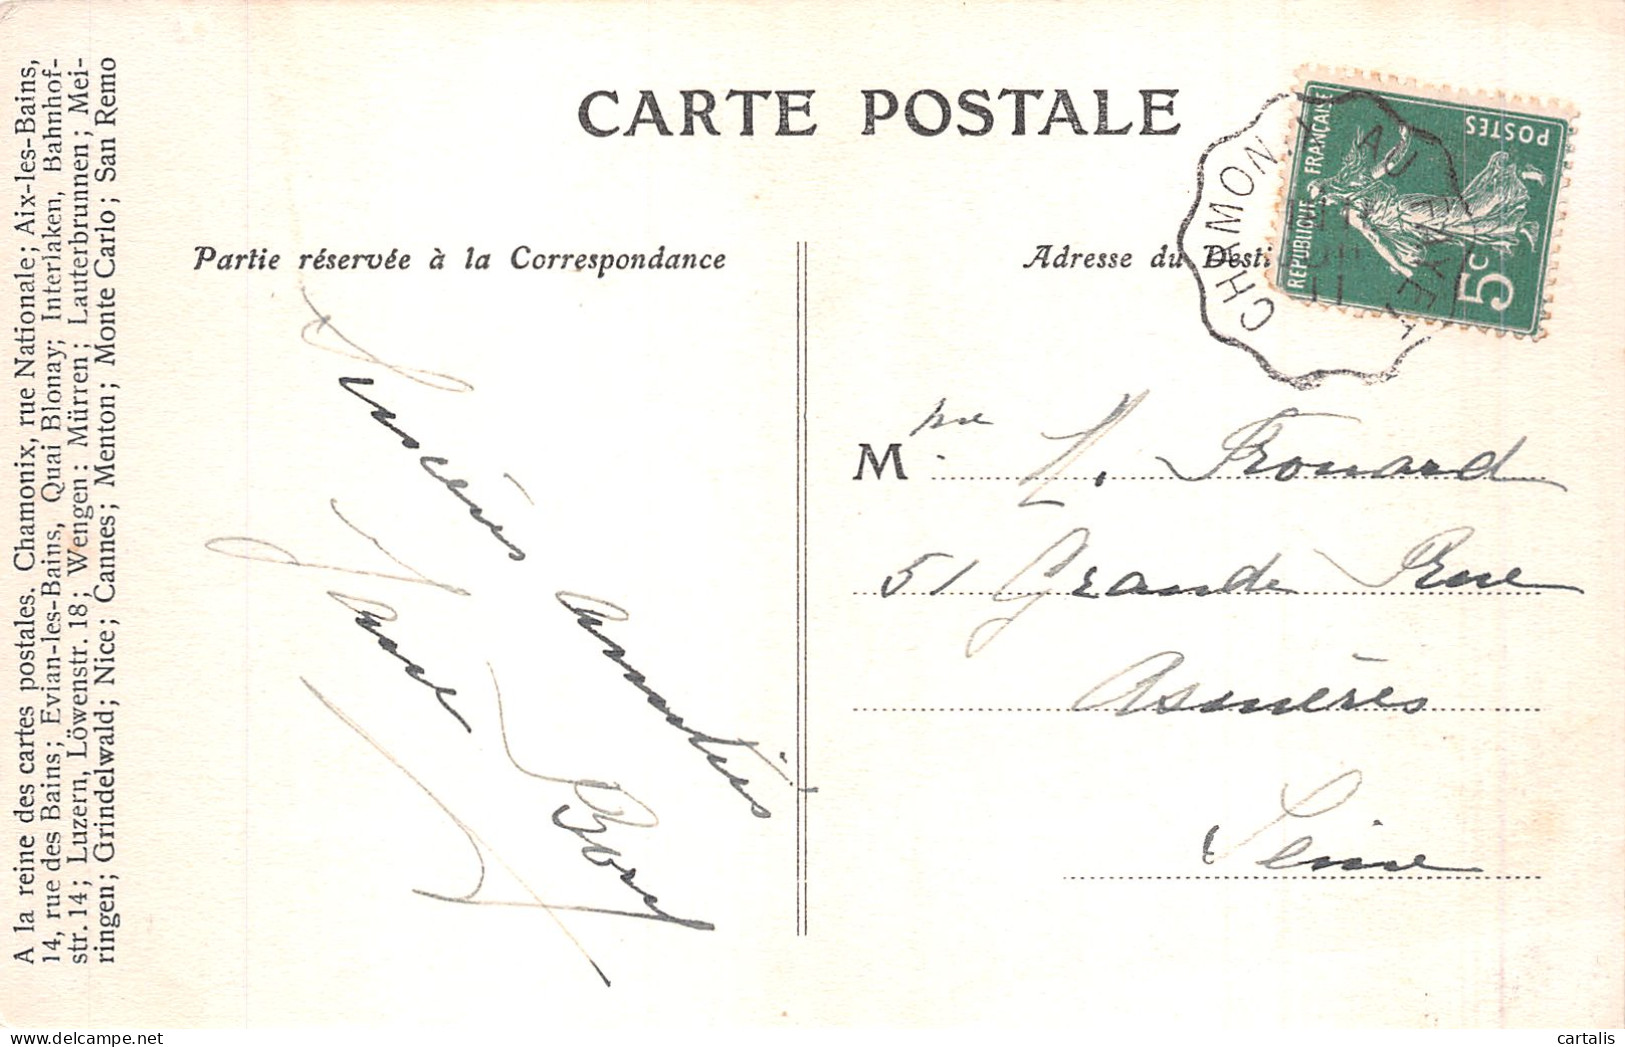 CARTE POSTALE
A la reine des cartes postales. Chamonix, rue Nationale; Aix-les-Bains,
14, rue des Bains; Evian-les-Bains, Quai Blonay; Interlaken, Bahnhof-
str. 14; Luzern, Löwenstr. 18; Wengen; Mürren; Lauterbrunnen; Mei-
ringen; Grindelwald; Nice; Cannes; Menton; Monte Carlo; San Remo
Partie réservée à la Correspondance
Adresse du Desti
REPUBLIQUE FRANÇAISE
POSTES
5c
CHAMONIX AU FAYET
Sincères Amitiés
M L. Frouard
51 Grande Rue
Asnières
Seine
cartalis